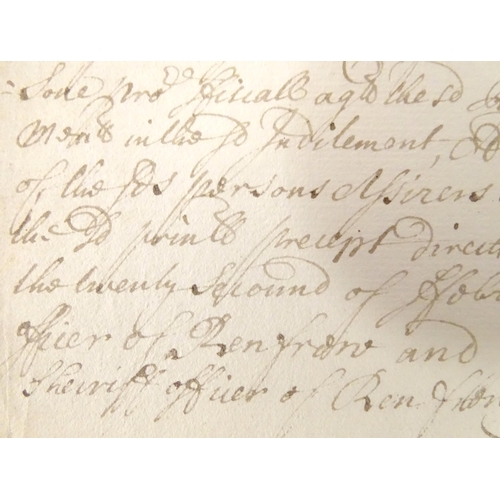 Sone pro^r ffiscall ag^t the sd
Ments in the sd Inditement, &
of, the sds persons Assizers
the sd print^s precept direct
the twenty Second of ffeb
fficer of Renfrew and
Sheriff officer of Renfrew